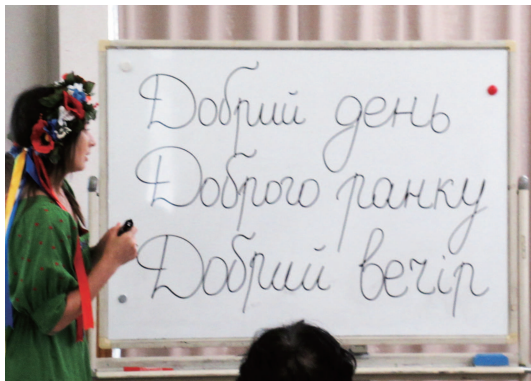 Добрий день
Доброго ранку
Добрий вечір